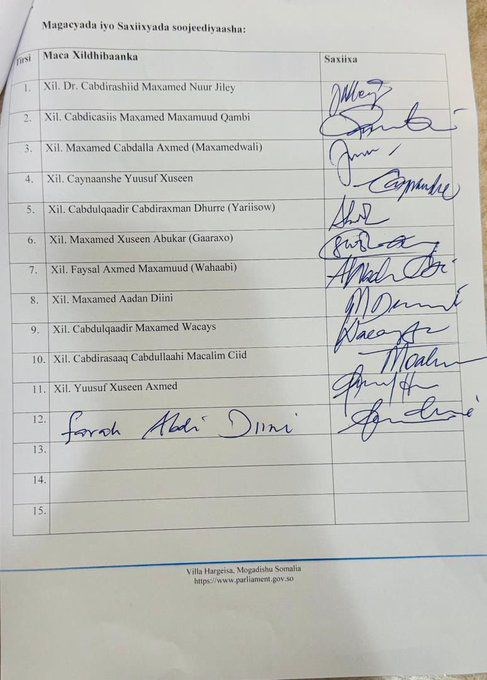 Magacyada iyo Saxiixyada soojeediyaasha:
Tirsi Maca Xildhibaanka Saxiixa
1. Xil. Dr. Cabdirashiid Maxamed Nuur Jiley
2. Xil. Cabdicasiis Maxamed Maxamuud Qambi
3. Xil. Maxamed Cabdalla Axmed (Maxamedwali)
4. Xil. Caynaanshe Yuusuf Xuseen
5. Xil. Cabdulqaadir Cabdiraxman Dhurre (Yariisow)
6. Xil. Maxamed Xuseen Abukar (Gaaraxo)
7. Xil. Faysal Axmed Maxamuud (Wahaabi)
8. Xil. Maxamed Aadan Diini
9. Xil. Cabdulqaadir Maxamed Wacays
10. Xil. Cabdirasaaq Cabdullaahi Macalim Ciid
11. Xil. Yuusuf Xuseen Axmed
12. Farah Abdi Diini
13.
14.
15.
Villa Hargeisa, Mogadishu Somalia
https://www.parliament.gov.so